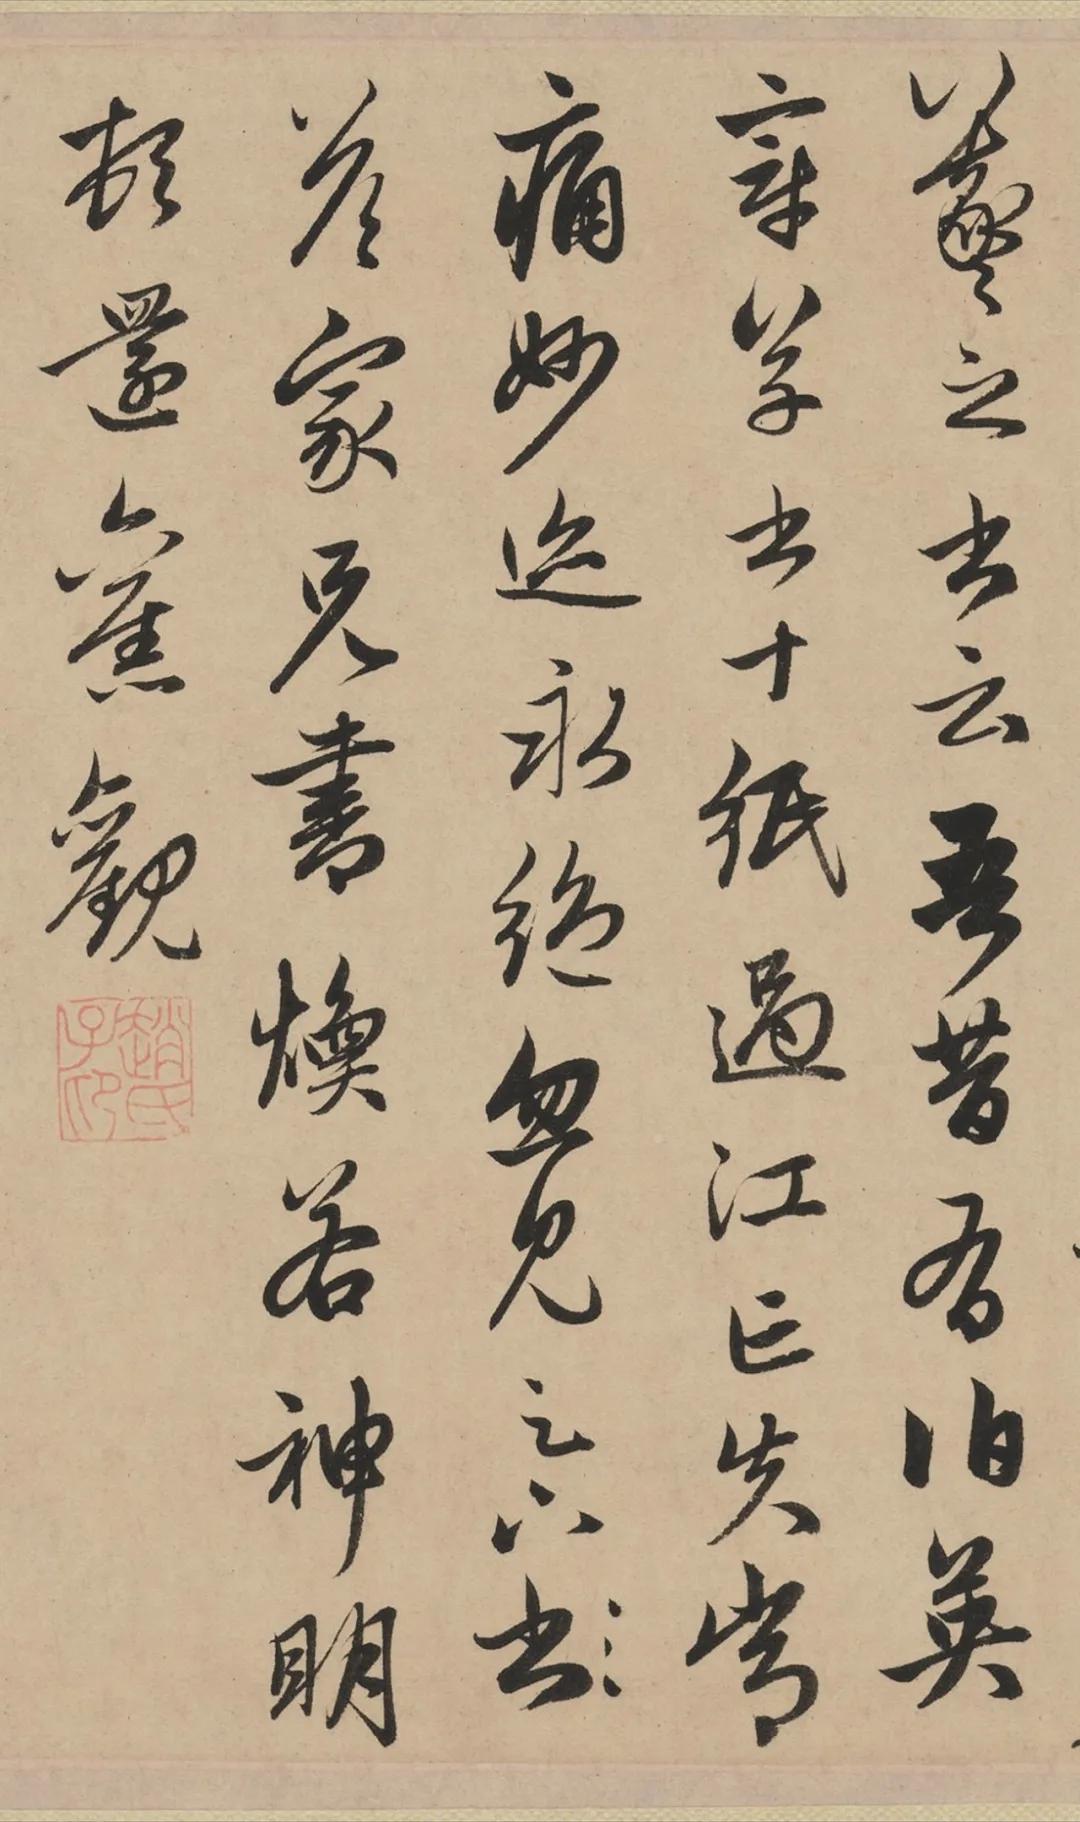 羲之書云吾昔有伯英
章草書十紙過江亡失常
痛妙迹永絶忽見足下書
答家兄書煥若神明
頓還舊觀
趙氏子昂